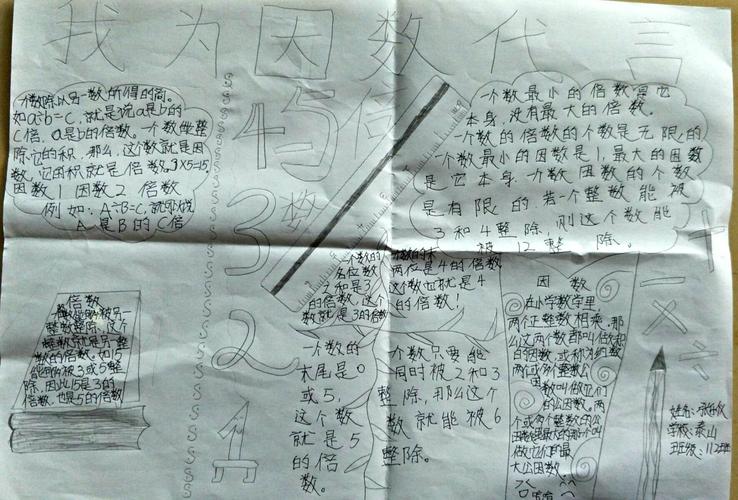 我为因数代言
一个数除以另一数所得的商。
如a÷b=C,就是说a是b的
C倍,a是b的倍数。一个数能整
除它的积,那么,这个数就是因
数,它的积就是倍数。3×5=15,
因数1 因数2 倍数
例如:A÷B=C,就可以说
A是B的C倍
一个数最小的倍数是它
本身,没有最大的倍数。
一个数的倍数的个数是无限的
一个数最小的因数是1,最大的因数
是它本身,一个数因数的个数
是有限的,若一个整数能被
3和4整除,则这个数能
被12整除。
5
4
3
2
1
倍数
一个整数能够被另一
整数整除,这个
整数就是另一整
数的倍数。如15
能够被3或5整
除,因此15是3的
倍数,也是5的倍数
一个数的
各位数
之和是3
的倍数,这个
数就是3的倍数
个数的末
两位是4的倍数
这个数也就是4
的倍数!
一个数的
末尾是0
或5,
这个数
就是5
的倍
数。
个数只要能
同时被2和3
整除,那么这个
数就能被6
整除。
因数
在小学数学里,
两个正整数相乘,那
么这两个数都叫做积
的因数,或称为约数
两个或多个整数公
因数叫做它们
的公因数。两
个或多个整数的公
因数里最大的那一个叫
做它们的最
大公因数。
+
−
×
÷
学校:泰山
班级:112班